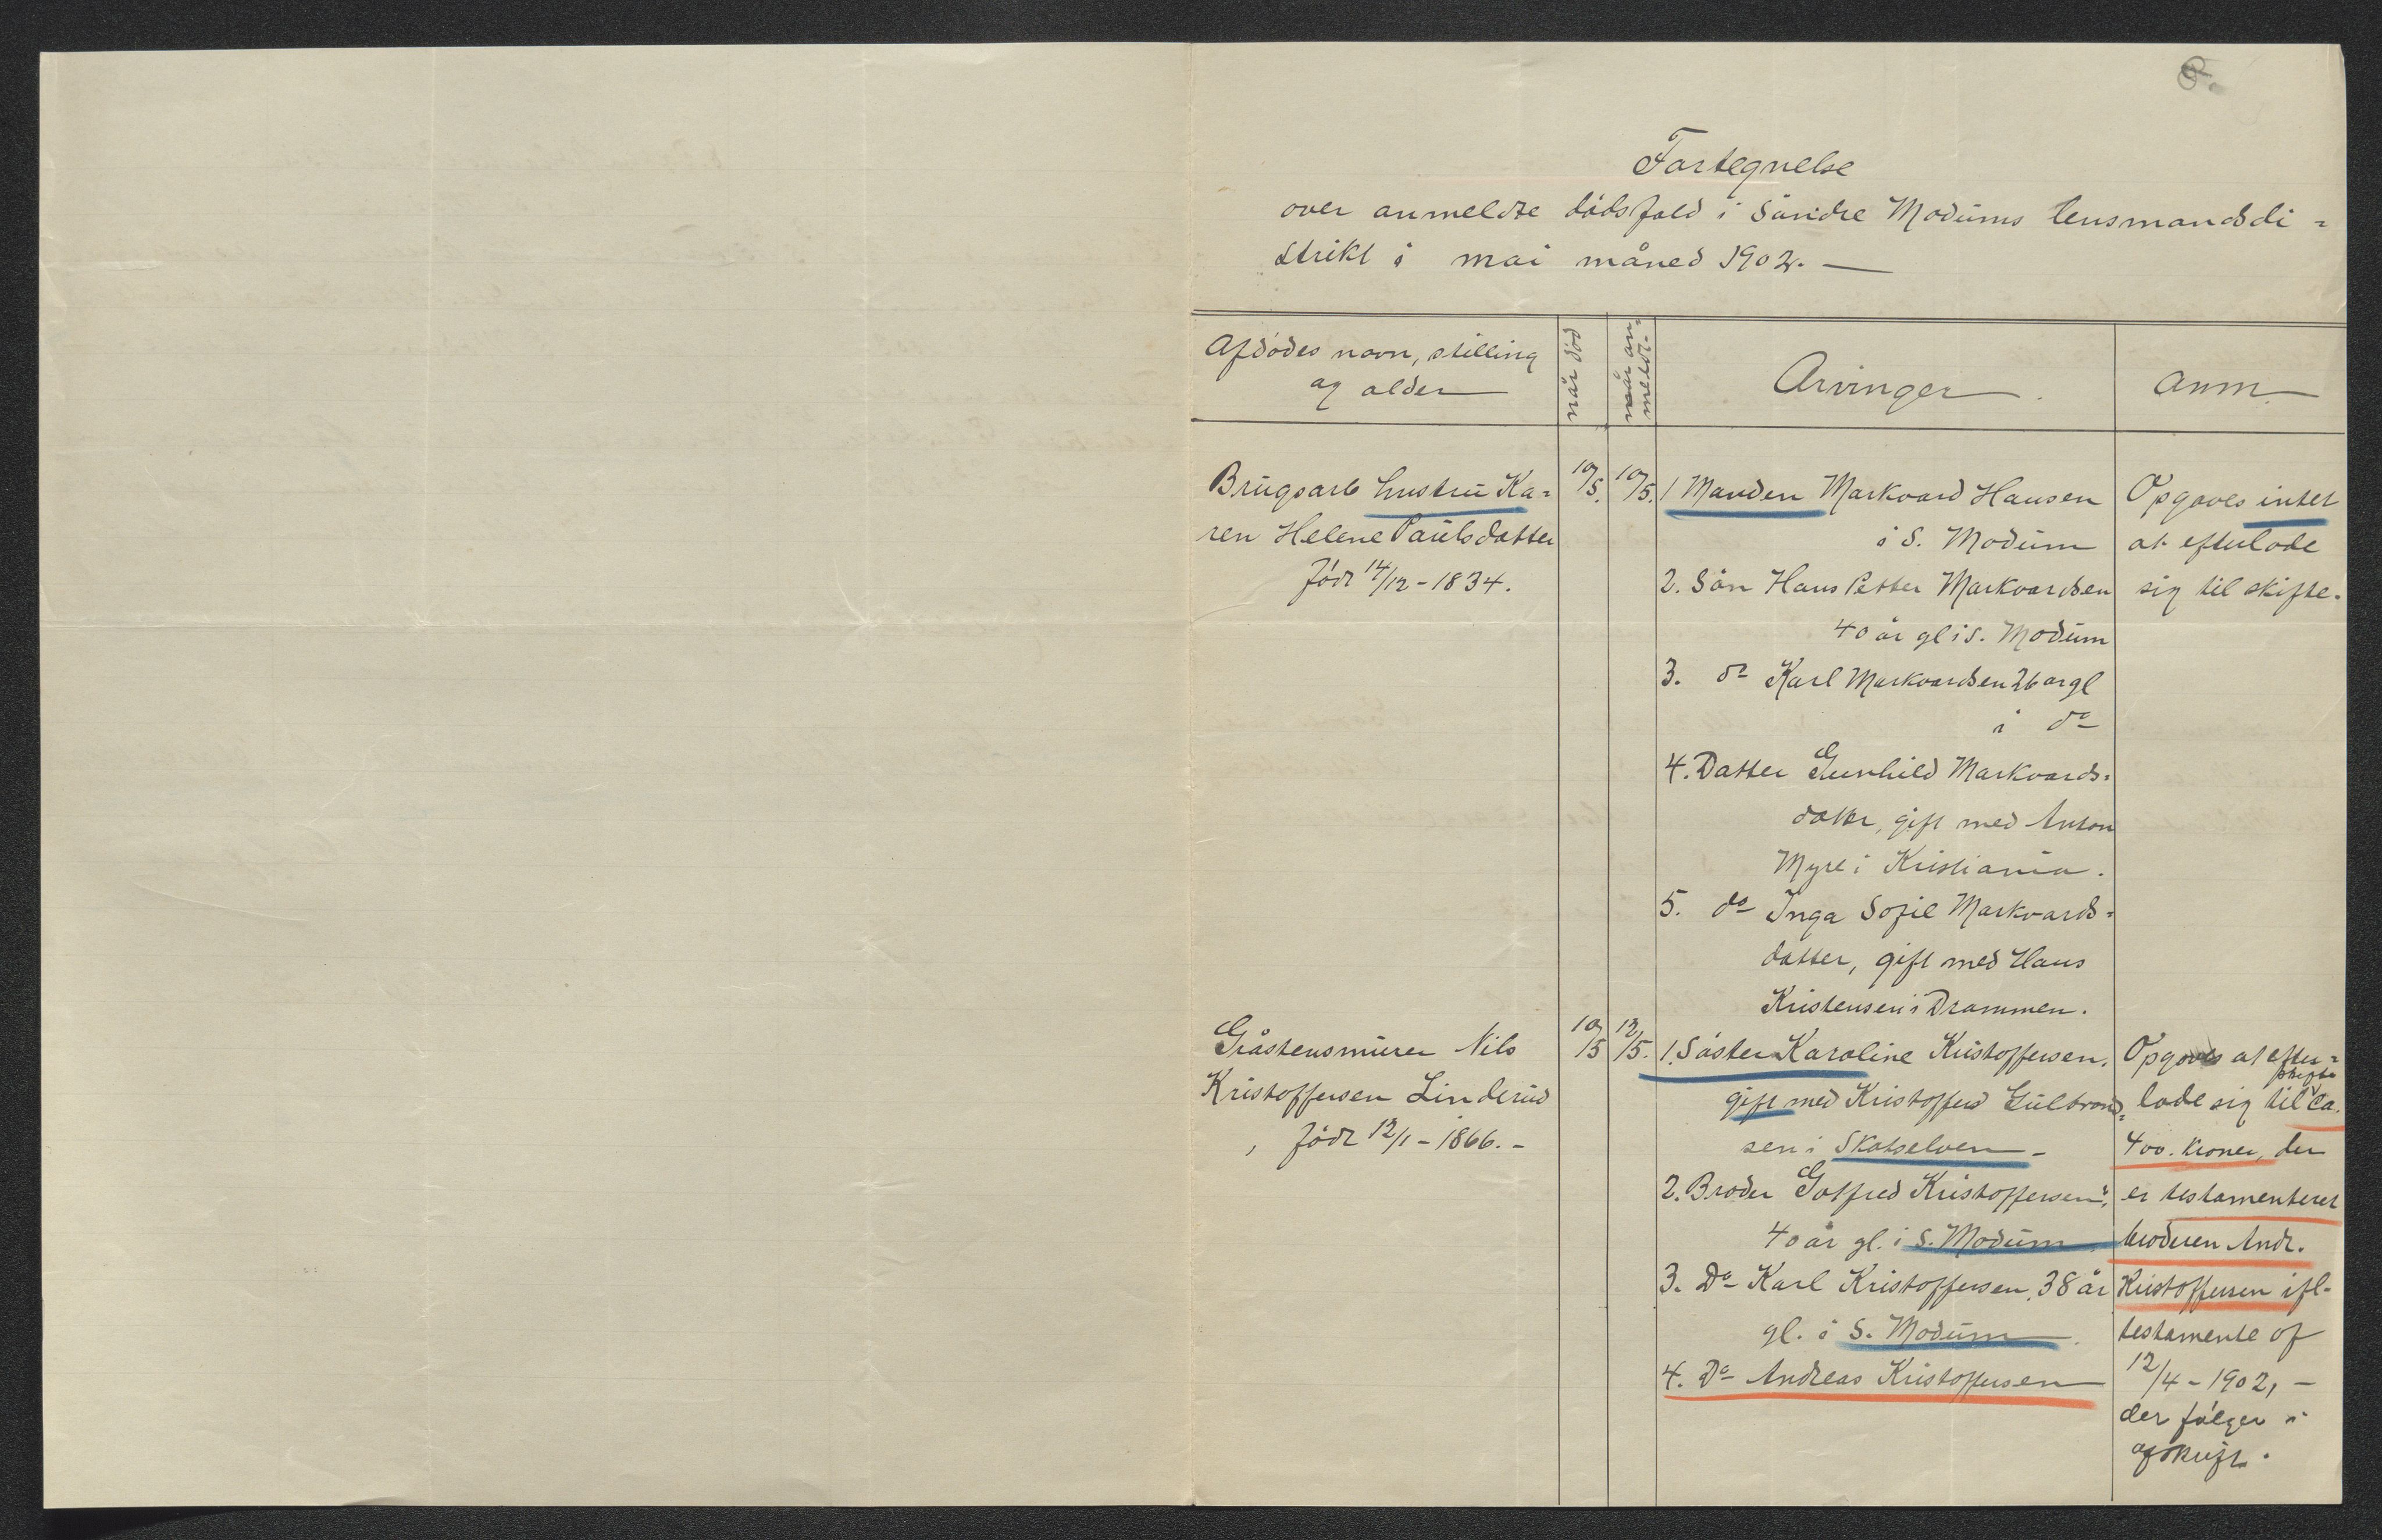 Fortegnelse
over anmeldte dödsfald i Söndre Modums lensmandsdi=
strikt i mai måned 1902. —
Afdödes navn, stilling
og alder
når död
når an=
meldt.
Arvinger.
Anm.
Brugsarb hustru Ka=
ren Helene Paulsdatter
född 14/12 - 1834.
10/5.
10/5.
1 Manden Markvard Hansen
i S. Modum
2. Sön Hans Petter Markvardsen
40 år gl i S. Modum
3. do Karl Markvardsen 26 år gl
i do
4. Datter Gunhild Markvards=
datter, gift med Anton
Myre i Kristiania.
5. do Inga Sofie Markvards=
datter, gift med Hans
Kristensen i Drammen.
Opgaves intet
at efterlade
sig til skifte.
Gråstensmurer Nils
Kristoffersen Linderud
, född 12/1 - 1866. -
10/5
12/5.
1. Söster Karoline Kristoffersen,
gift med Kristoffer Gulbrand=
sen i Skotselven -
2. Broder Gotfred Kristoffersen,
40 år gl. i S. Modum.
3. Do Karl Kristoffersen, 38 år
gl. i S. Modum.
4. Do Andreas Kristoffersen
Opgaves at efter=
lade sig til skifte ca.
400. kroner, der
er testamenteret
broderen Andr.
Kristoffersen ifl.
testamente af
12/4 - 1902, -
der fölger i
afskrift.